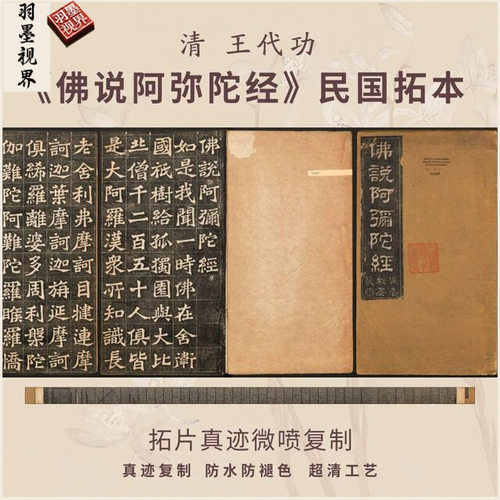 羽墨
视界
羽墨视界
清 王代功
《佛说阿弥陀经》民国拓本
佛說阿彌陀經
如是我聞一時佛在舍衛
國祇樹給孤獨園與大比
丘僧千二百五十人俱皆
是大阿羅漢衆所知識長
老舍利弗摩訶目揵連摩
訶迦葉摩訶迦旃延摩訶
俱絺羅離婆多周利槃陀
伽難陀阿難陀羅睺羅憍
佛說阿彌陀經
拓片真迹微喷复制
真迹复制 防水防褪色 超清工艺